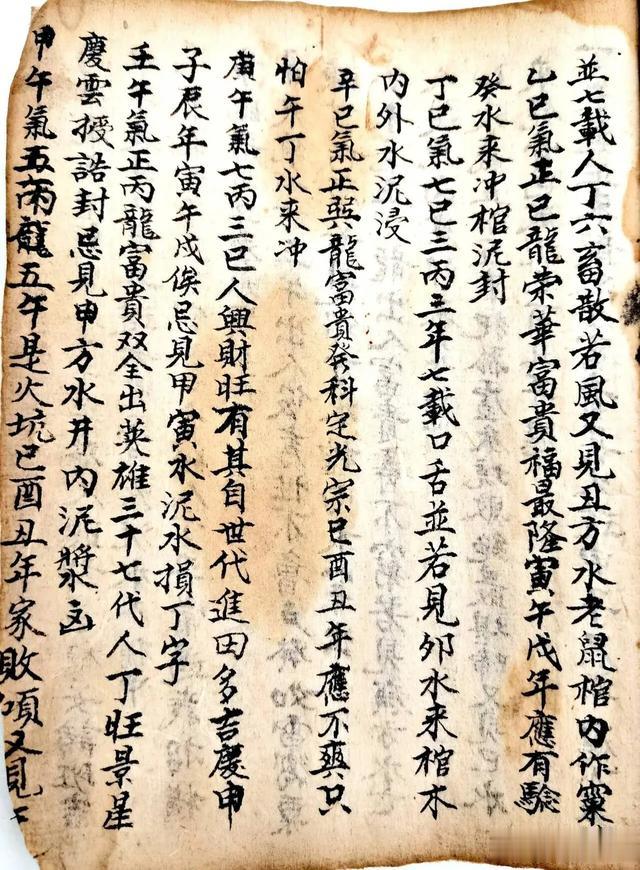 並七載人丁六畜散若風又見丑方水老鼠棺内作窠
乙巳氣正巳龍荣華富貴福最隆寅午戌年應有驗
癸水来冲棺泥封
丁巳氣七巳三丙三年七載口舌並若見夘水来棺木
内外水泥浸
辛巳氣正巽龍富貴發科定光宗巳酉丑年應不爽只
怕午丁水来冲
庚午氣七丙三巳人興財旺有其自世代進田多吉慶申
子辰年寅午戌俟忌見甲寅水泥水損丁字
壬午氣正丙龍富貴双全出英雄三十七代人丁旺景星
慶雲授誥封忌見申方水井内泥漿
甲午氣五丙龍五午是火坑巳酉丑年家敗頃又見